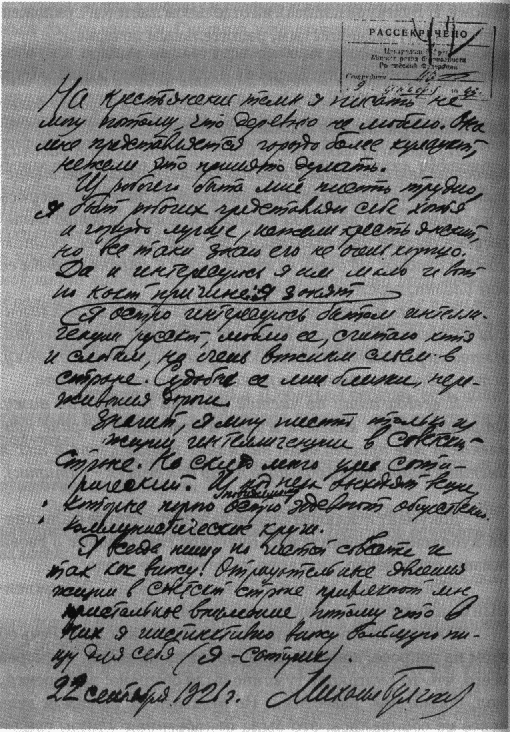 РАССЕКРЕЧЕНО
На крестьянские темы я писать не
могу потому, что деревню не люблю. Она
мне представляется гораздо более кулацкой,
нежели это принято думать.
Из рабочего быта мне писать трудно,
Я быт рабочих представляю себе хотя
и гораздо лучше, нежели крестьянский,
но все таки знаю его не очень хорошо.
Да и интересуюсь я им мало и вот
по какой причине: я занят
Я остро интересуюсь бытом интелли-
генции русской, люблю ее, считаю хотя
и слабым, но очень важным слоем в
стране. Судьбы ее мне близки, пере-
живания дороги.
Значит, я могу писать только из
жизни интеллигенции в Советской
стране. Но склад моего ума сати-
рический. Из под пера выходят вещи,
которые порою остро задевают общественно-
коммунистические круги.
Я всегда пишу по чистой совести и
так как вижу! Отрицательные явления
жизни в Советской стране привлекают мое
пристальное внимание потому что в
них я инстинктивно вижу большую пи-
щу для себя (я - сатирик).
22 сентября 1926 г. Михаил Булгаков